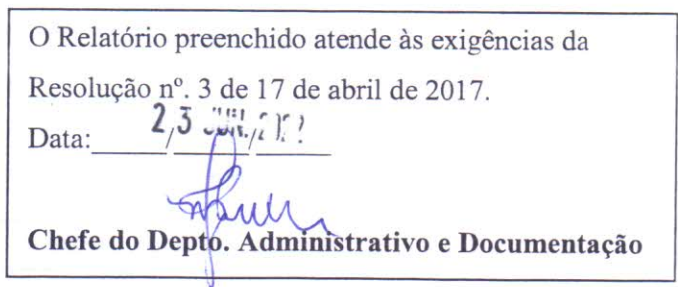 O Relatório preenchido atende às exigências da
Resolução nº. 3 de 17 de abril de 2017.
Data: 23
Chefe do Depto. Administrativo e Documentação